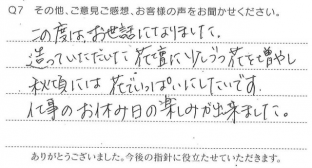 Q7 その他、ご意見ご感想、お客様の声をお聞かせください。
この度はお世話になりました。
造っていただいた花壇に少しづつ花を増やし
秋頃には花でいっぱいにしたいです。
仕事のお休み日の楽しみが出来ました。
ありがとうございました。今後の指針に役立たせていただきます。